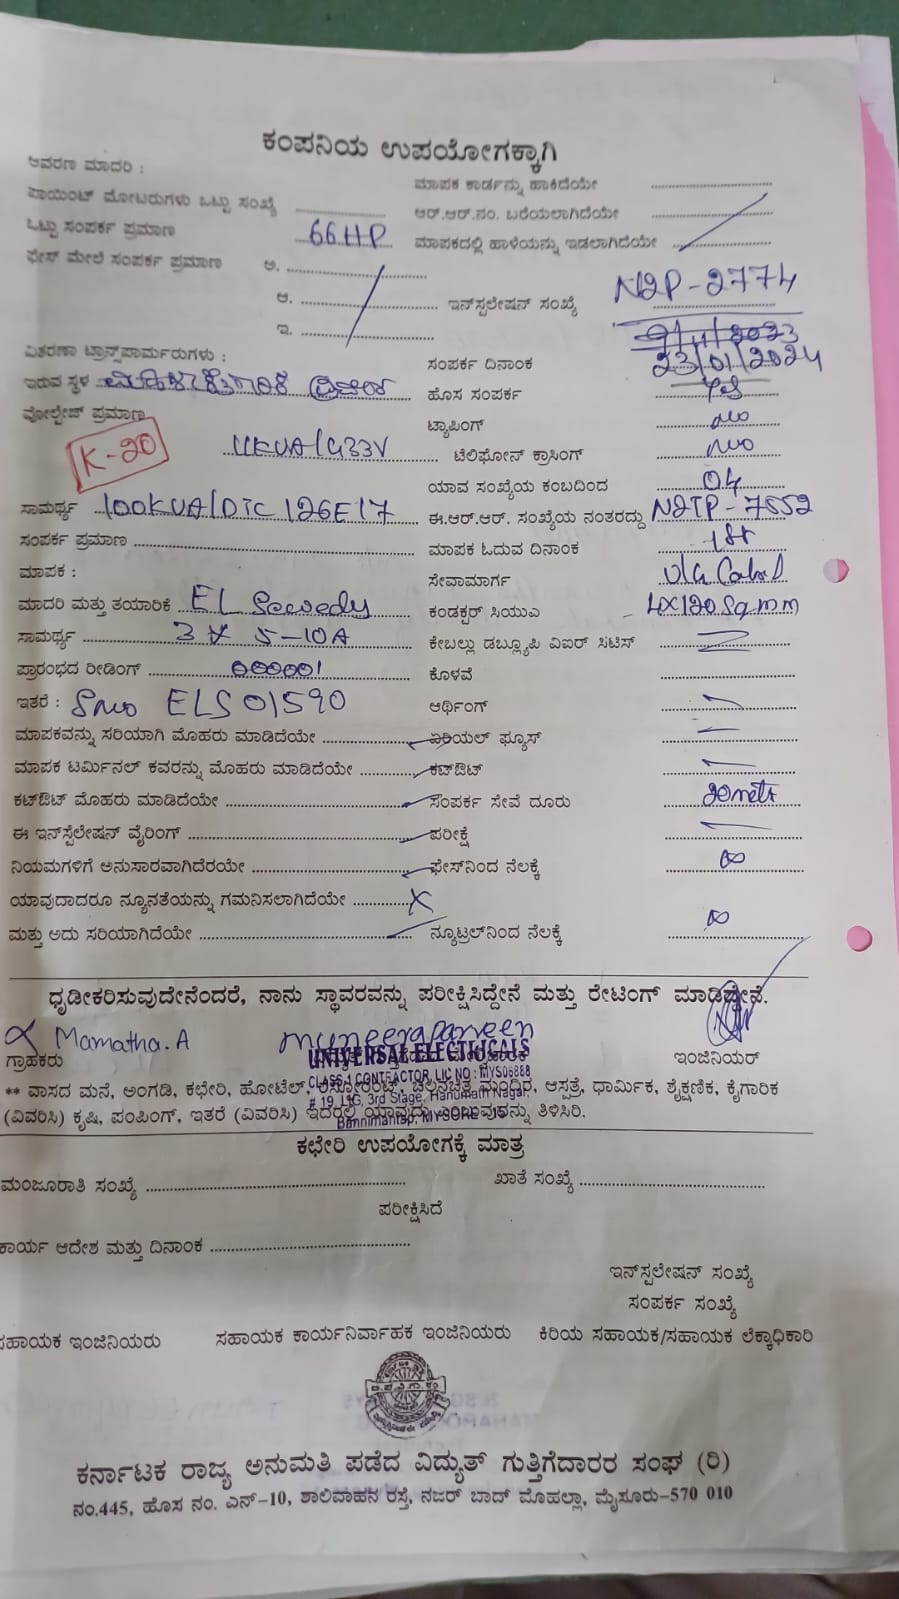 ಕಂಪನಿಯ ಉಪಯೋಗಕ್ಕಾಗಿ
ಆವರಣ ಮಾದರಿ :
ಮಾಪಕ ಕಾರ್ಡನ್ನು ಹಾಕಿದೆಯೇ
ಪಾಯಿಂಟ್ ಮೋಟರುಗಳು ಒಟ್ಟು ಸಂಖ್ಯೆ
ಆರ್.ಆರ್.ನಂ. ಬರೆಯಲಾಗಿದೆಯೇ
ಒಟ್ಟು ಸಂಪರ್ಕ ಪ್ರಮಾಣ 66HP
ಮಾಪಕದಲ್ಲಿ ಹಾಳೆಯನ್ನು ಇಡಲಾಗಿದೆಯೇ
ಫೇಸ್ ಮೇಲೆ ಸಂಪರ್ಕ ಪ್ರಮಾಣ ಅ.
ಆ.
ಇನ್‌ಸ್ಟಲೇಷನ್ ಸಂಖ್ಯೆ N2P-2774
ಇ.
ವಿತರಣಾ ಟ್ರಾನ್ಸ್‌ಫಾರ್ಮರುಗಳು :
ಸಂಪರ್ಕ ದಿನಾಂಕ 23/01/2024
ಇರುವ ಸ್ಥಳ
ಹೊಸ ಸಂಪರ್ಕ Yes
ವೋಲ್ಟೇಜ್ ಪ್ರಮಾಣ 11KVA/433V
ಟ್ಯಾಪಿಂಗ್ NO
K-20
ಟೆಲಿಫೋನ್ ಕ್ರಾಸಿಂಗ್ NO
ಯಾವ ಸಂಖ್ಯೆಯ ಕಂಬದಿಂದ 04
ಸಾಮರ್ಥ್ಯ 100KVA/DTC 126E17
ಈ.ಆರ್.ಆರ್. ಸಂಖ್ಯೆಯ ನಂತರದ್ದು N2TP-7552
ಸಂಪರ್ಕ ಪ್ರಮಾಣ
ಮಾಪಕ ಓದುವ ದಿನಾಂಕ 1st
ಮಾಪಕ :
ಸೇವಾಮಾರ್ಗ U/G
ಮಾದರಿ ಮತ್ತು ತಯಾರಿಕೆ EL Sewedy
ಕಂಡಕ್ಟರ್ ಸಿಯುಎ 4X120 Sqmm
ಸಾಮರ್ಥ್ಯ 3 X 5-10A
ಕೇಬಲ್ಲು ಡಬ್ಲ್ಯೂಪಿ ವಿಐಆರ್ ಸಿಟಿಸ್
ಪ್ರಾರಂಭದ ರೀಡಿಂಗ್ 000001
ಕೊಳವೆ
ಇತರೆ : SNO ELS01590
ಆರ್ಥಿಂಗ್
ಮಾಪಕವನ್ನು ಸರಿಯಾಗಿ ಮೊಹರು ಮಾಡಿದೆಯೇ
ಏರಿಯಲ್ ಫ್ಯೂಸ್
ಮಾಪಕ ಟರ್ಮಿನಲ್ ಕವರನ್ನು ಮೊಹರು ಮಾಡಿದೆಯೇ
ಕಟ್‌ಔಟ್
ಕಟ್‌ಔಟ್ ಮೊಹರು ಮಾಡಿದೆಯೇ
ಸಂಪರ್ಕ ಸೇವೆ ದೂರು
ಈ ಇನ್‌ಸ್ಟೆಲೇಷನ್ ವೈರಿಂಗ್
ಪರೀಕ್ಷೆ
ನಿಯಮಗಳಿಗೆ ಅನುಸಾರವಾಗಿದೆರಯೇ
ಫೇಸ್‌ನಿಂದ ನೆಲಕ್ಕೆ ∞
ಯಾವುದಾದರೂ ನ್ಯೂನತೆಯನ್ನು ಗಮನಿಸಲಾಗಿದೆಯೇ X
ಮತ್ತು ಅದು ಸರಿಯಾಗಿದೆಯೇ
ನ್ಯೂಟ್ರಲ್‌ನಿಂದ ನೆಲಕ್ಕೆ ∞
ಧೃಡೀಕರಿಸುವುದೇನೆಂದರೆ, ನಾನು ಸ್ಥಾವರವನ್ನು ಪರೀಕ್ಷಿಸಿದ್ದೇನೆ ಮತ್ತು ರೇಟಿಂಗ್ ಮಾಡಿದ್ದೇನೆ.
Mamatha.A muneeraparveen
ಗ್ರಾಹಕರು ಇಂಜಿನಿಯರ್
UNIVERSAL ELECTRICALS
CLASS-1 CONTRACTOR, LIC NO : MYS06888
# 19, LIG, 3rd Stage, Hanumanth Nagar,
Bannimantap, MYSORE
** ವಾಸದ ಮನೆ, ಅಂಗಡಿ, ಕಛೇರಿ, ಹೋಟೆಲ್, ಮಂದಿರ, ಆಸ್ಪತ್ರೆ, ಧಾರ್ಮಿಕ, ಶೈಕ್ಷಣಿಕ, ಕೈಗಾರಿಕ
(ವಿವರಿಸಿ) ಕೃಷಿ, ಪಂಪಿಂಗ್, ಇತರೆ (ವಿವರಿಸಿ) ಇದರಲ್ಲಿ ಯಾವುದು ಎಂಬುವುದನ್ನು ತಿಳಿಸಿರಿ.
ಕಛೇರಿ ಉಪಯೋಗಕ್ಕೆ ಮಾತ್ರ
ಮಂಜೂರಾತಿ ಸಂಖ್ಯೆ ಖಾತೆ ಸಂಖ್ಯೆ
ಪರೀಕ್ಷಿಸಿದೆ
ಕಾರ್ಯ ಆದೇಶ ಮತ್ತು ದಿನಾಂಕ
ಇನ್‌ಸ್ಟಲೇಷನ್ ಸಂಖ್ಯೆ
ಸಂಪರ್ಕ ಸಂಖ್ಯೆ
ಸಹಾಯಕ ಇಂಜಿನಿಯರು ಸಹಾಯಕ ಕಾರ್ಯನಿರ್ವಾಹಕ ಇಂಜಿನಿಯರು ಕಿರಿಯ ಸಹಾಯಕ/ಸಹಾಯಕ ಲೆಕ್ಕಾಧಿಕಾರಿ
ಕರ್ನಾಟಕ ರಾಜ್ಯ ಅನುಮತಿ ಪಡೆದ ವಿದ್ಯುತ್ ಗುತ್ತಿಗೆದಾರರ ಸಂಘ (ರಿ)
ನಂ.445, ಹೊಸ ನಂ. ಎನ್-10, ಶಾಲಿವಾಹನ ರಸ್ತೆ, ನಜರ್ ಬಾದ್ ಮೊಹಲ್ಲಾ, ಮೈಸೂರು-570 010